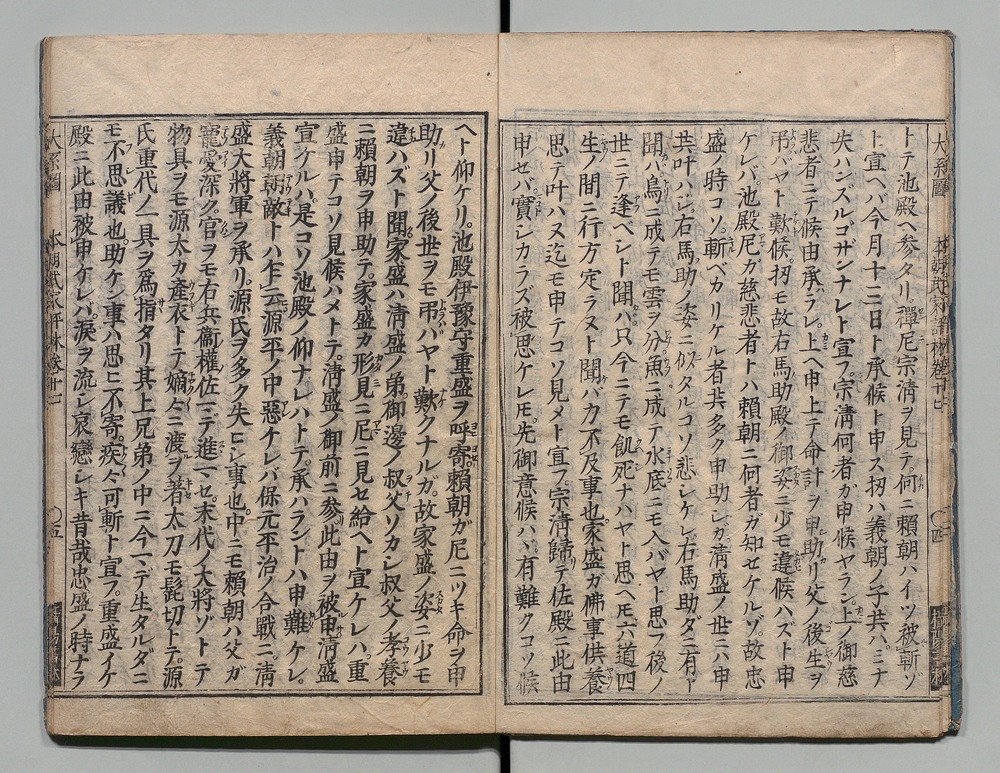 トテ池殿ヘ参タリ禪尼宗清ヲ見テ何ニ頼朝ハイツ被斬ゾ
ト宣ヘバ今月十三日ト承候ト申ス扨ハ義朝ノ子共ハミナ
失ハンズルゴザンナレト宣フ宗清何者カ申候ヤラン上ノ御慈
悲者ニテ候由承ラレ上ヘ申上テ命計ヲ申助リ父ノ後生ヲ
吊バヤト歎候扨モ故右馬助殿ノ御姿ニ少モ違候ハズト申
ケレバ池殿尼カ慈悲者トハ頼朝ニ何者ガ知セケルゾ故忠
盛ノ時コソ斬ベカリケル者共多ク申助シガ清盛ノ世ニハ申
共叶ハジ右馬助ノ姿ニ似タルコソ悲シケレ右馬助ダニ有ト
聞ハ鳥ニ成テモ雲ヲ分魚ニ成テ水底ニモ入バヤト思フ後ノ
世ニテ逢ベシト聞ハ只今ニテモ飢死ナハヤト思ヘ𪜈六道四
生ノ間ニ行方定ラヌト聞バカ不及事也家盛ガ佛事供養ト
思テ叶ハヌ迄モ申テコソ見メト宣フ宗清歸テ佐殿ニ此由
申セバ實シカラズ被思ケレ𪜈先御意候ハバ有難クコソ候
ヘト仰ケリ池殿伊豫守重盛ヲ呼寄頼朝ガ尼ニツキ命ヲ申
助リ父ノ後世ヲモ吊ハヤト歎クナルガ故家盛ノ姿ニ少モ
違ハズト聞家盛ハ清盛ノ弟御邊ノ叔父ソカシ叔父ノ孝養
ニ頼朝ヲ申助テ家盛カ形見ニ尼ニ見セ給ヘト宣ケレハ重
盛申テコソ見候ハメトテ清盛ノ御前ニ参此由ヲ被申清盛
宣ケルハ是コソ池殿ノ仰ナレハトテ承ハラントハ申難ケレ
義朝朝敵ト乍云源平ノ中惡ケレバ保元平治ノ合戰ニ清
盛大將軍ヲ承リ源氏ヲ多ク失ヒシ事也中ニモ頼朝ハ父ガ
寵愛深ク官ヲモ右兵衞權佐ニテ進マセ末代ノ大將ゾトテ
物具ヲモ源太カ産衣トテ嫡々ニ渡ヲ著太刀モ髭切トテ源
氏重代ノ一具ヲ爲指タリ其上兄弟ノ中ニ今マテ生タルダニ
モ不思議也助ケン事ハ思ヒ不寄疾々可斬ト宣フ重盛イケ
殿ニ此由被申ケレバ涙ヲ流シ哀戀シキ昔哉忠盛ノ時ナラ
大系圖
〇四
大系圖
〇五